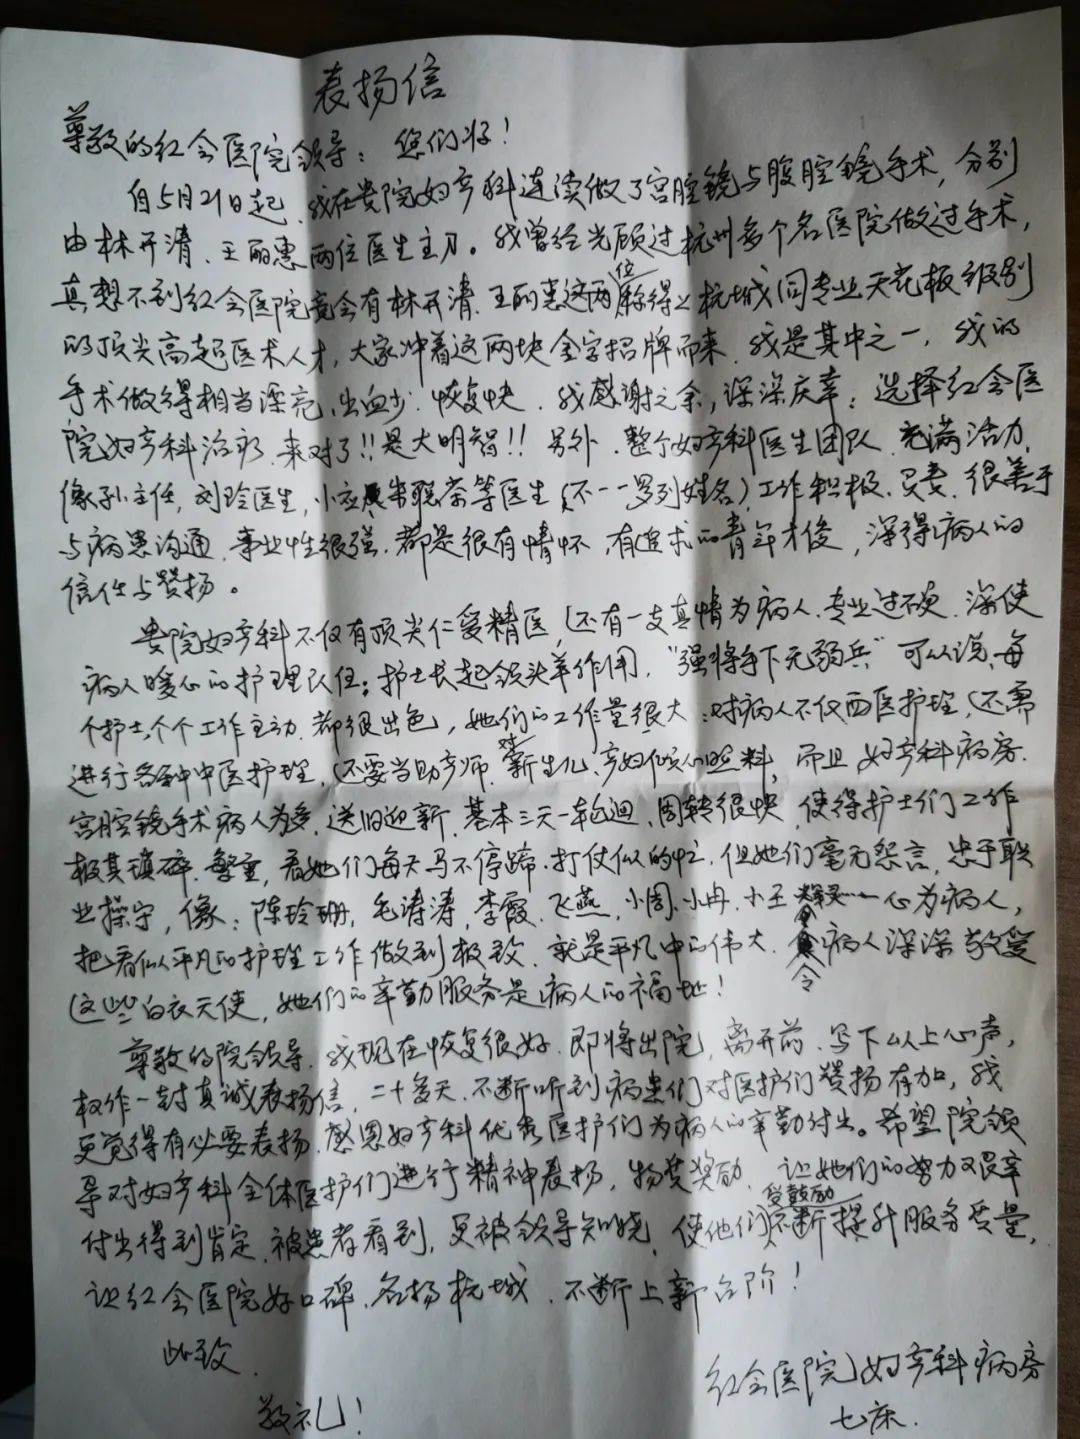 表扬信
尊敬的红会医院领导：您们好！
自5月21日起，我在贵院妇产科连续做了宫腔镜与腹腔镜手术，分别
由林开清、王丽惠两位医生主刀。我曾经光顾过杭州多个名医院做过手术，
真想不到红会医院竟会有林开清、王丽惠这两位称得上杭城同专业天花板级别
的顶尖高超医术人才，大家冲着这两块金字招牌而来，我是其中之一，我的
手术做得相当漂亮、出血少、恢复快，我感谢之余，深深庆幸：选择红会医
院妇产科治疗，来对了!!是大明智!!另外，整个妇产科医生团队，充满活力，
像孙主任，刘玲医生，小应 等医生（不一一罗列姓名）工作积极、负责、很善于
与病患沟通，事业性很强，都是很有情怀，有追求的青年才俊，深得病人的
信任与赞扬。
贵院妇产科不仅有顶尖仁爱精医，还有一支真情为病人、专业过硬，深使
病人暖心的护理队伍；护士长起领头羊作用，“强将手下无弱兵”可以说，每
个护士，个个工作主动，都很出色，她们的工作量很大：对病人不仅西医护理，还需
进行各种中医护理，还要当助产师，对新生儿、产妇 照料，而且，妇产科病房，
宫腔镜手术病人为多，送旧迎新，基本三天一轮回，周转很快，使得护士们工作
极其琐碎、繁重，看她们每天马不停蹄，打仗似的忙，但她们毫无怨言，忠于职
业操守，像：陈玲珊，毛涛涛，李霞、飞燕，小周、小冉、小王 一心为病人，
把看似平凡的护理工作做到极致，就是平凡中的伟大，令病人深深敬爱
这些白衣天使，她们的辛勤服务是病人的福地！
尊敬的院领导，我现在恢复很好，即将出院，离开前，写下以上心声，
权作一封真诚表扬信，二十多天，不断听到病患们对医护们赞扬有加，我
更觉得有必要表扬、感恩妇产科优秀医护们为病人的辛勤付出。希望院领
导对妇产科全体医护们进行精神表扬，物质奖励，让她们的努力艰辛
付出得到肯定，被患者看到，更被领导知晓，使他们受鼓励不断提升服务质量，
让红会医院好口碑，名扬杭城，不断上新台阶！
此致
敬礼！
红会医院妇产科病房
七床.